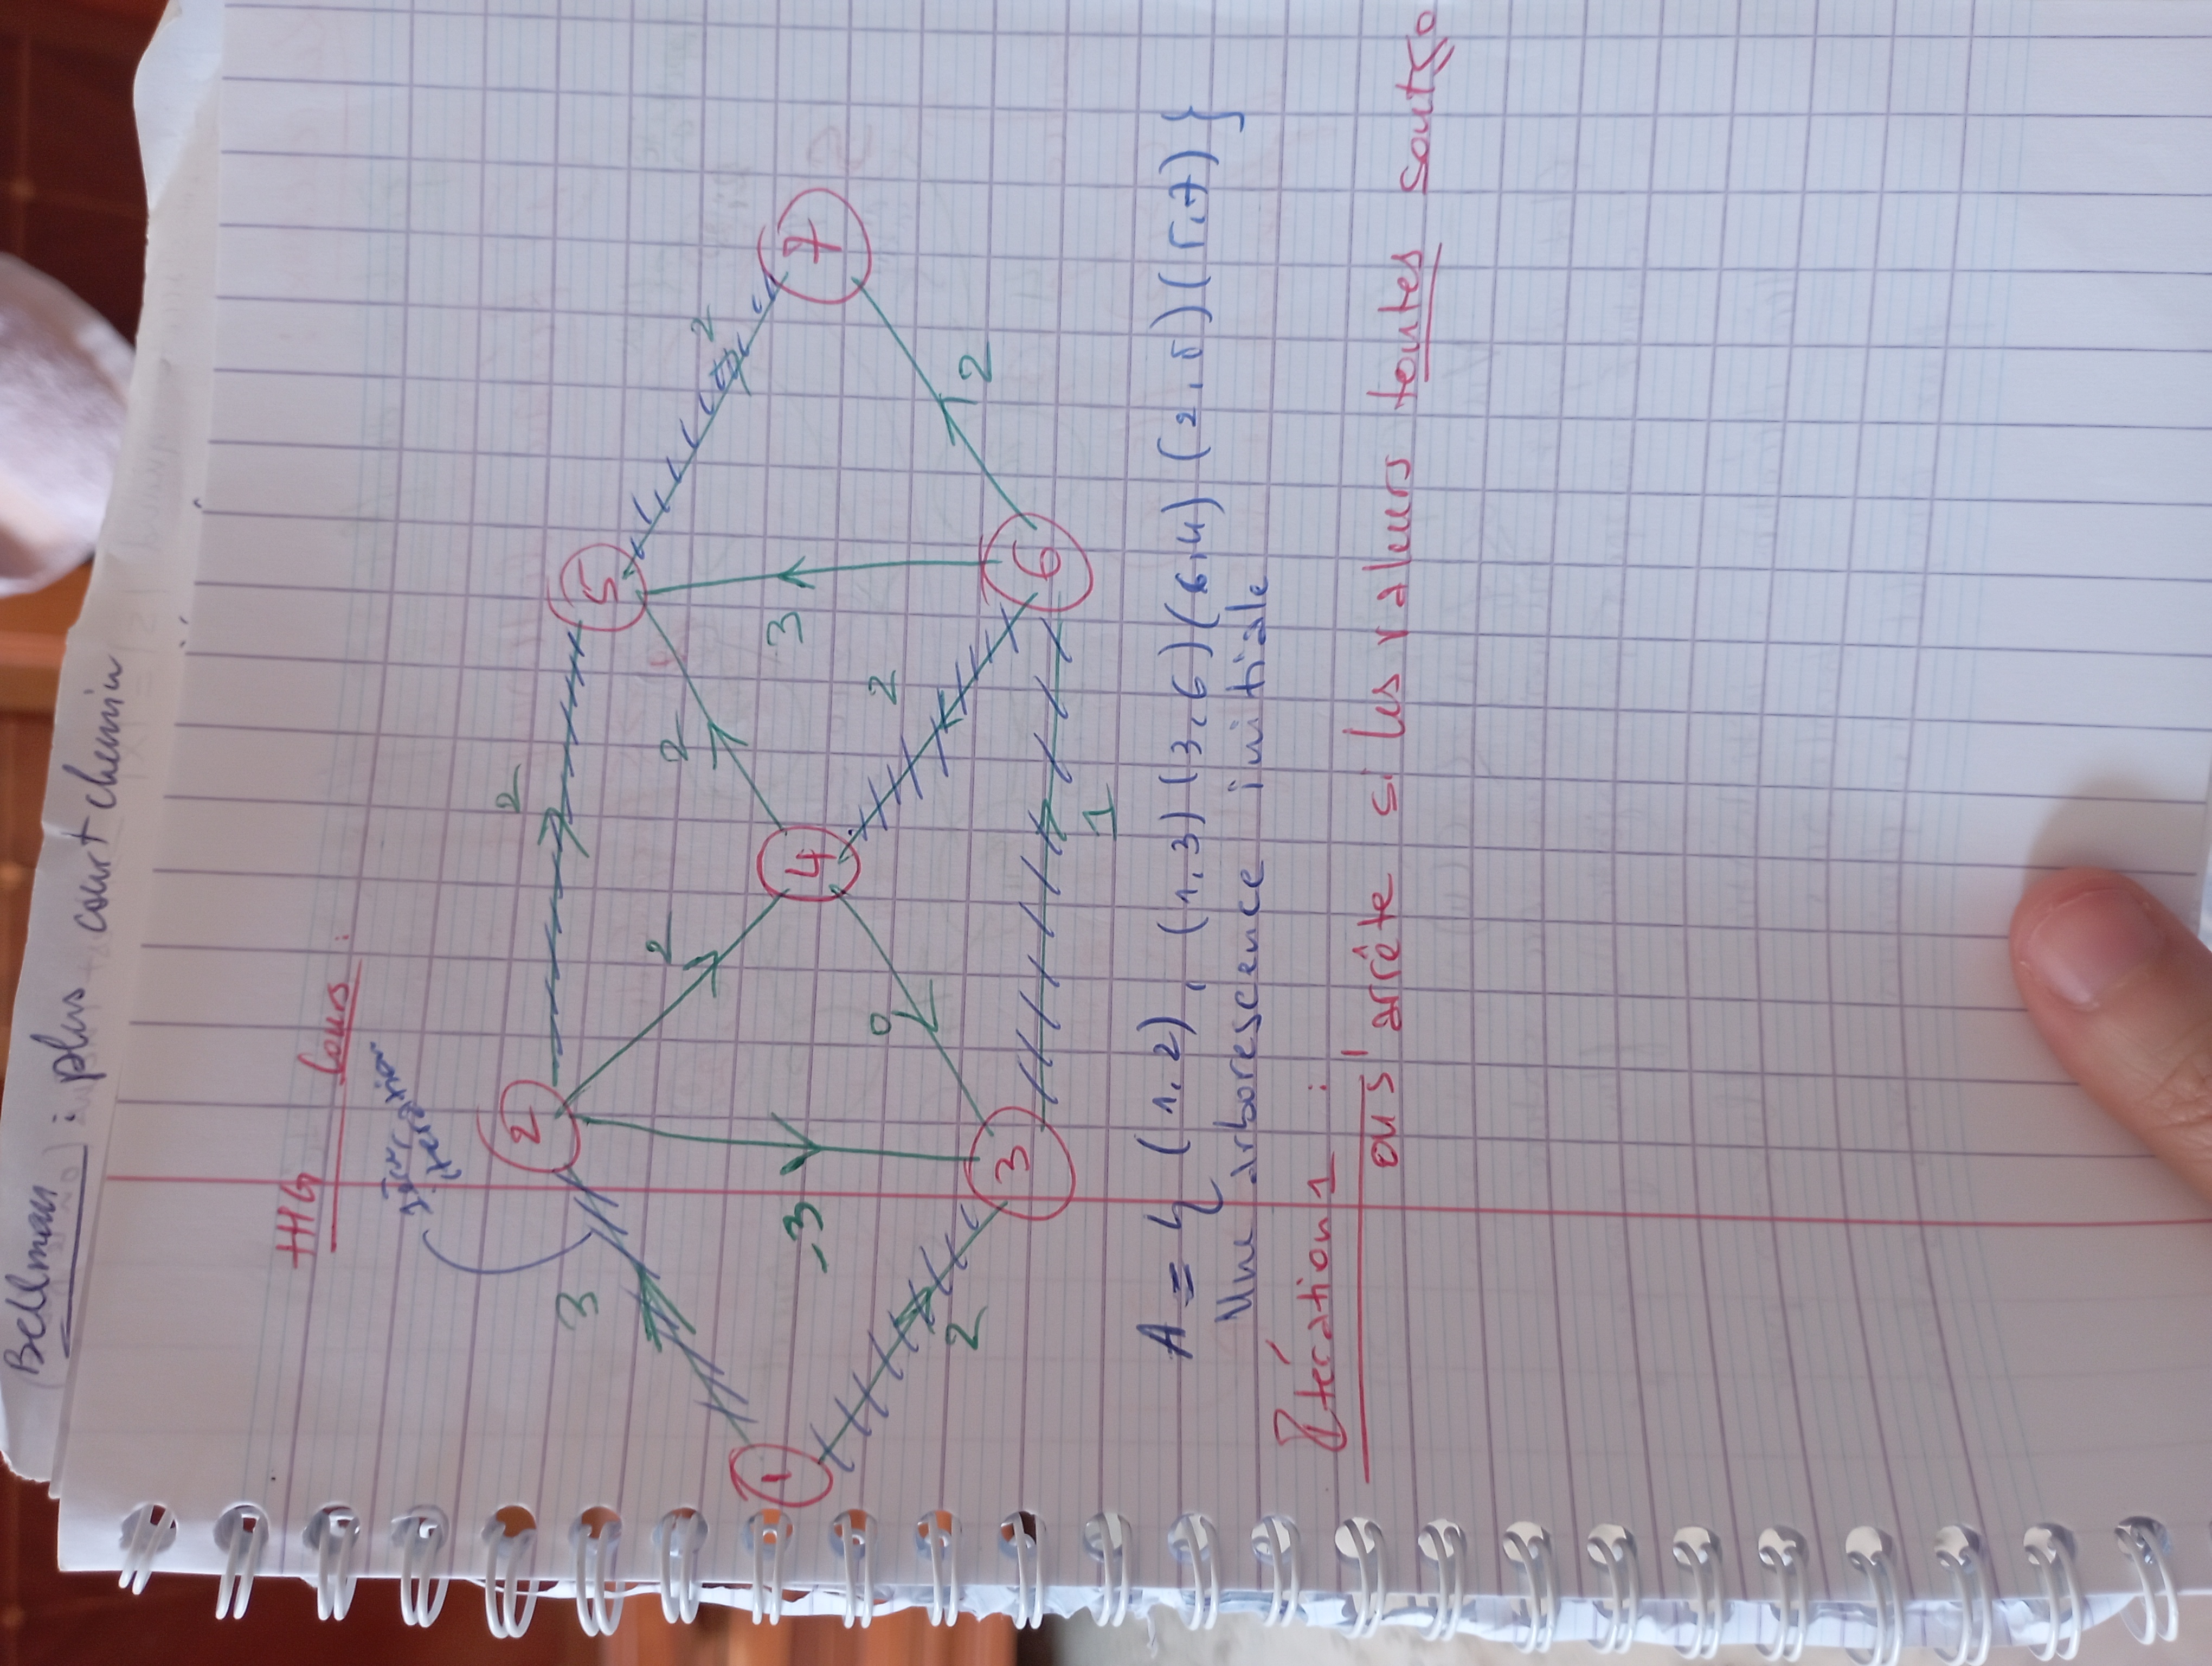 Bellman : plus court chemin
Cours :
1ère
itération
2
2
5
3
2
2
2
1
-3
4
3
7
0
2
2
2
3
6
1
A = { (1,2), (1,3) (3,6) (6,4) (2,5) (5,7) }
Une arborescence initiale
Itération 1 :
on s'arrête si les valeurs toutes sont ≤0